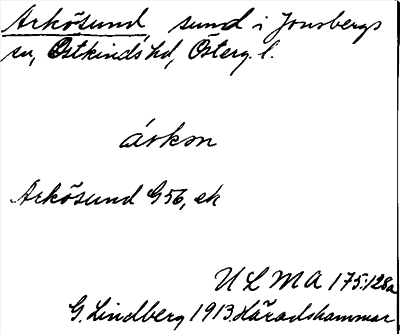 Arkösund, sund i Jonsbergs
sn, Östkinds hd, Österg. l.
árkøn
Arkösund G56, ek
ULMA 175:128a
G. Lindberg 1913. Häradshammar